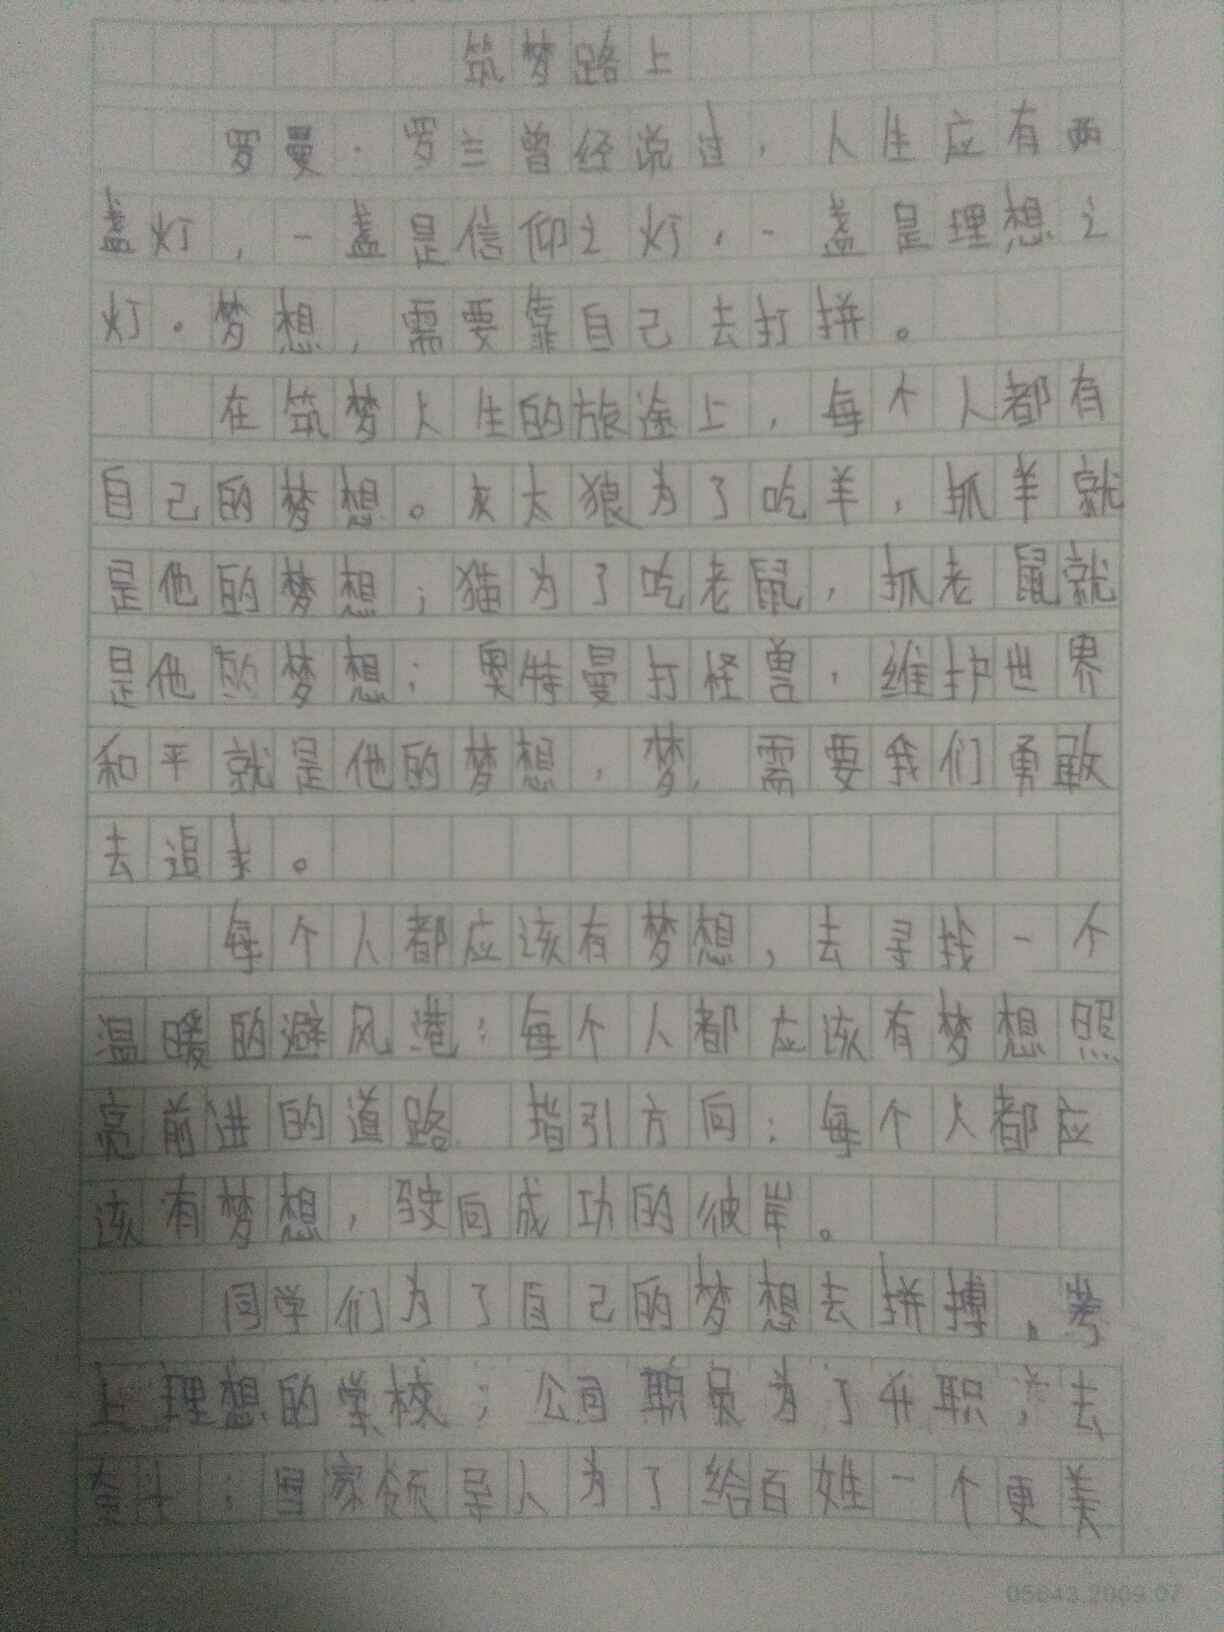 筑梦路上
罗曼·罗兰曾经说过，人生应有两
盏灯，一盏是信仰之灯，一盏是理想之
灯。梦想，需要靠自己去打拼。
在筑梦人生的旅途上，每个人都有
自己的梦想。灰太狼为了吃羊，抓羊就
是他的梦想；猫为了吃老鼠，抓老鼠就
是他的梦想；奥特曼打怪兽，维护世界
和平就是他的梦想，梦，需要我们勇敢
去追求。
每个人都应该有梦想，去寻找一个
温暖的避风港；每个人都应该有梦想照
亮前进的道路 指引方向；每个人都应
该有梦想，驶向成功的彼岸。
同学们为了自己的梦想去拼搏，考
上理想的学校；公司职员为了升职，去
奋斗；国家领导人为了给百姓一个更美
05643.2009.07